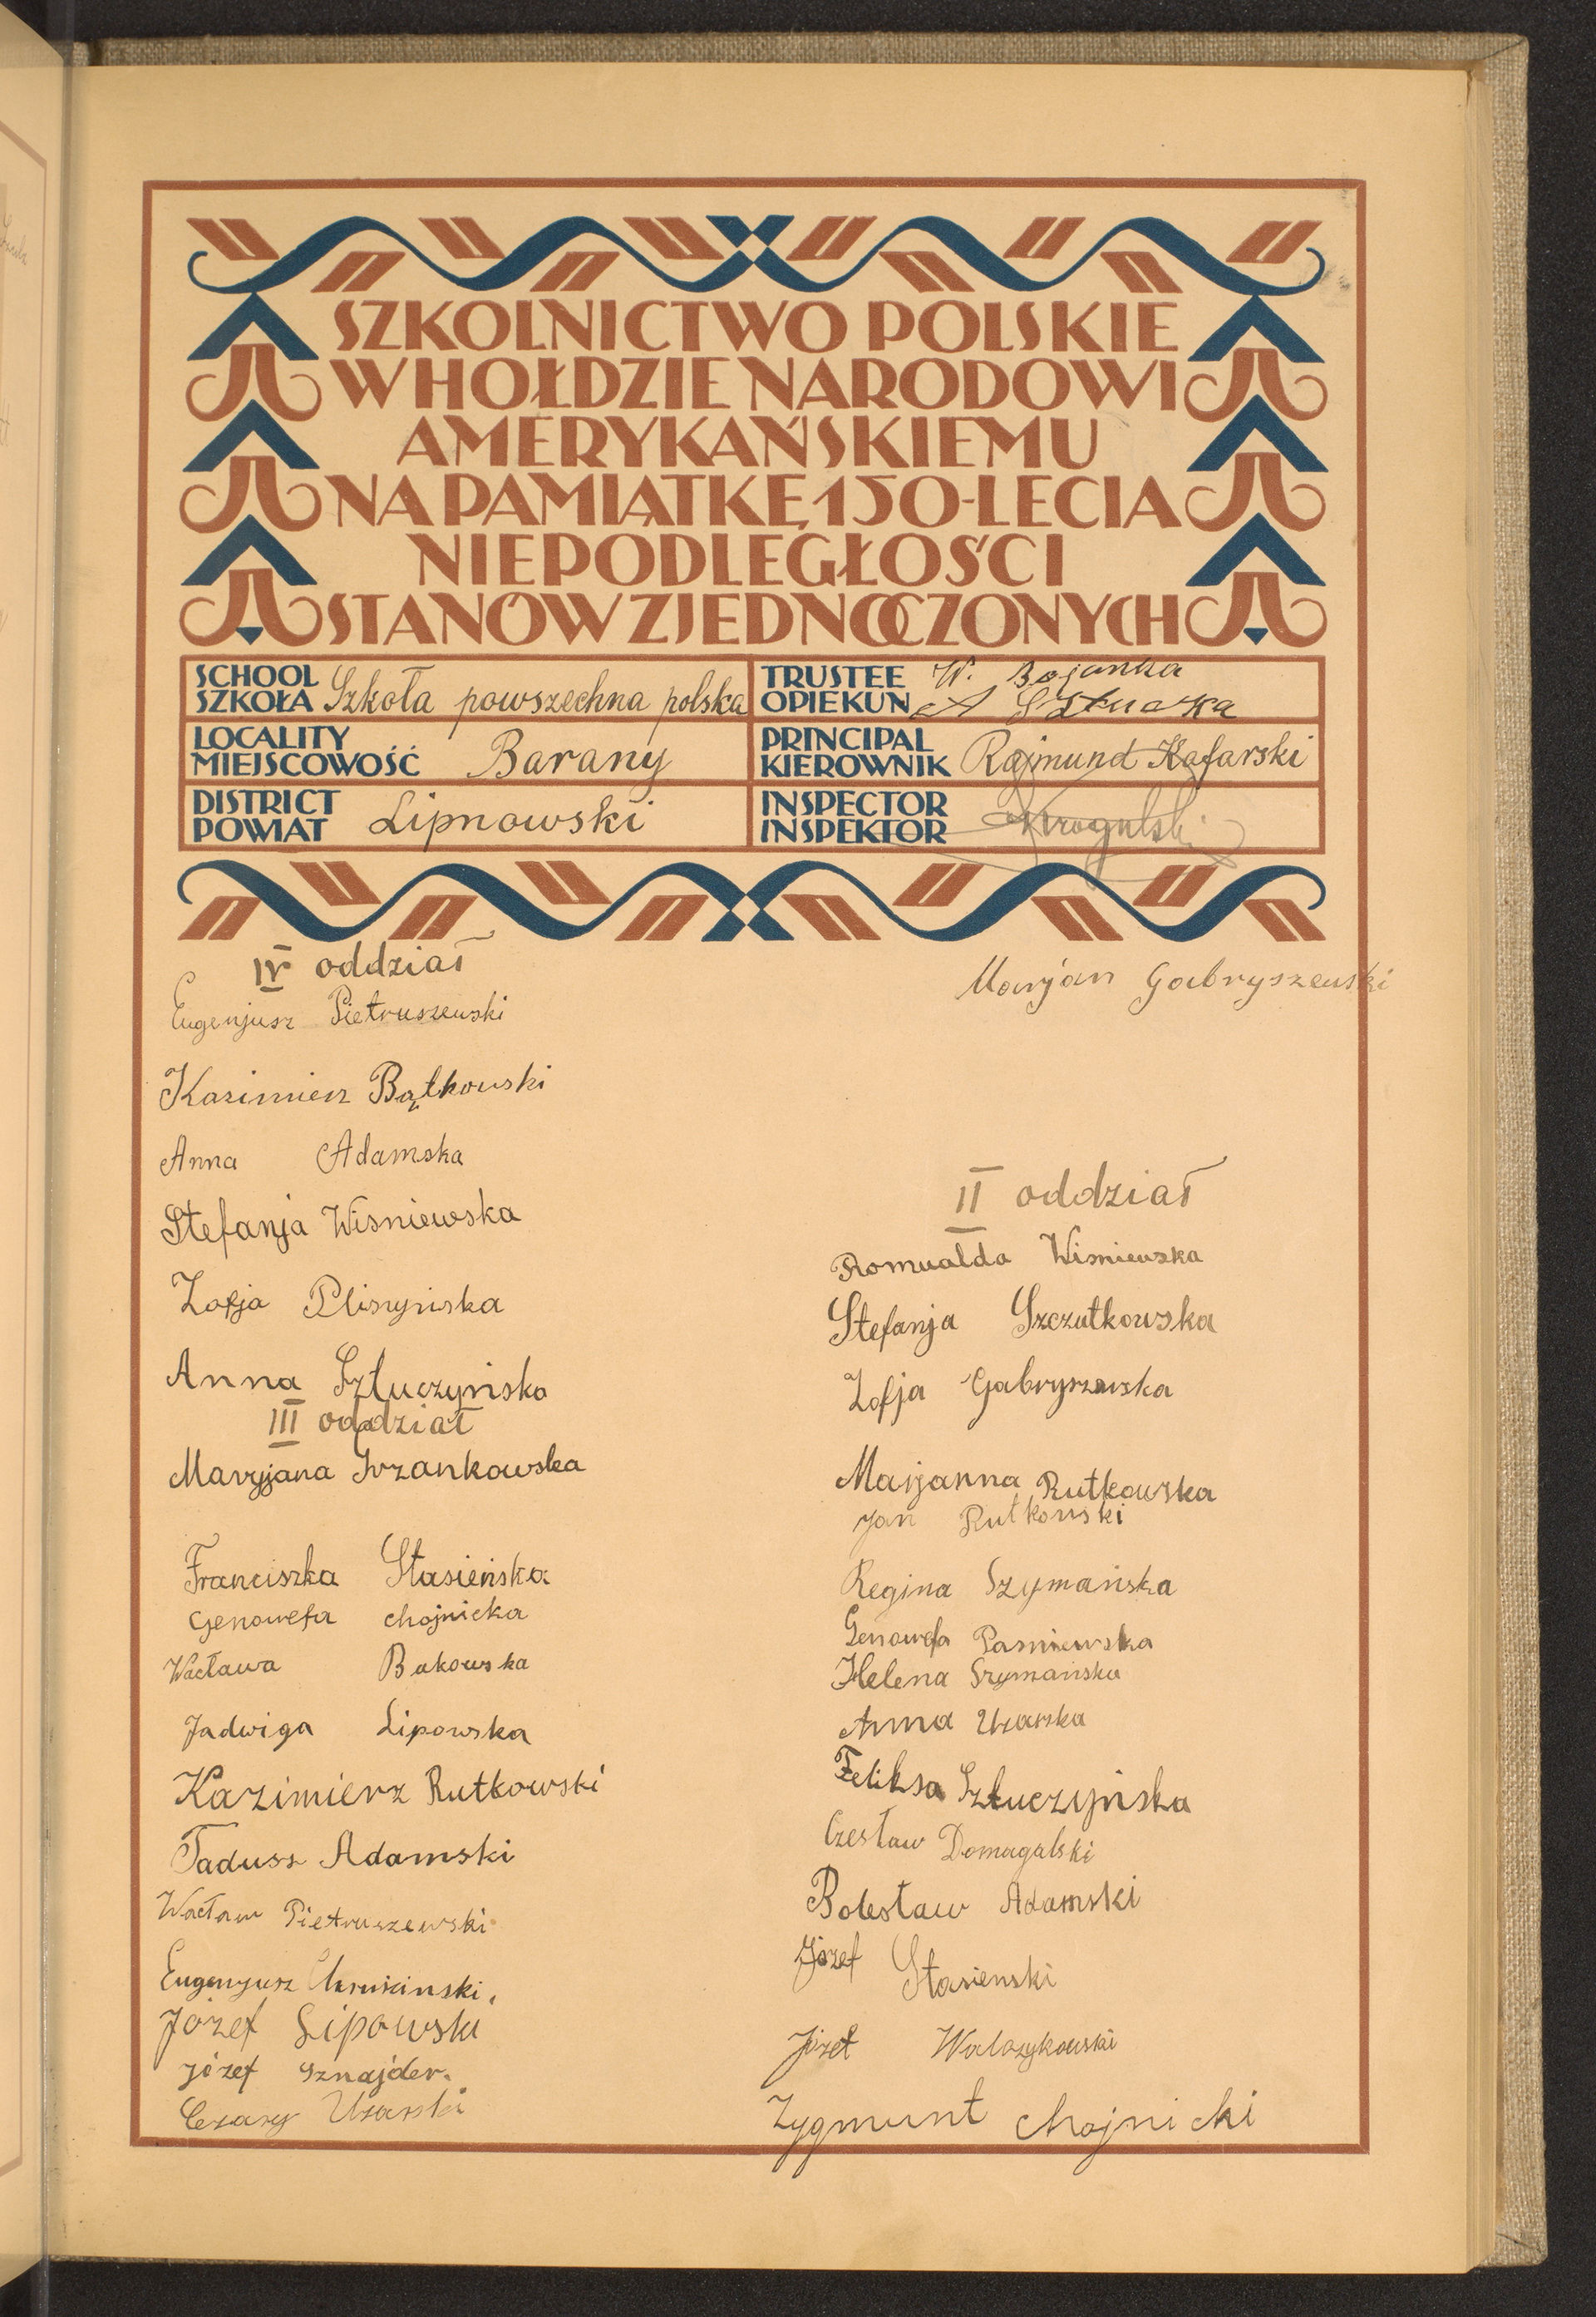 SZKOLNICTWO POLSKIE
W HOŁDZIE NARODOWI
AMERYKAŃSKIEMU
NA PAMIĄTKĘ 150-LECIA
NIEPODLEGŁOŚCI
STANÓW ZJEDNOCZONYCH
SCHOOL
SZKOŁA Szkoła powszechna polska
TRUSTEE W. Bojanka
OPIEKUN A Sztucka
LOCALITY
MIEJSCOWOŚĆ Barany
PRINCIPAL
KIEROWNIK Rajmund Kafarski
DISTRICT
POWIAT Lipnowski
INSPECTOR
INSPEKTOR
IV oddział
Eugenjusz Pietruszewski
Kazimierz Bątkowski
Anna Adamska
Stefanja Wisniewska
Zofja Pliszyńska
Anna Sztuczyńska
III oddział
Maryjana
Franciszka Stasieńska
Genowefa Chojnicka
Wacława Bukowska
Jadwiga Lipowska
Kazimierz Rutkowski
Tadusz Adamski
Wacław Pietruszewski
Eugenjusz
Józef Lipowski
Józef Sznajder.
Cezary Uzarski
Marjan Gabryszewski
II oddział
Romualda Wisniewska
Stefanja Szczutkowska
Zofja Gabryszewska
Marjanna Rutkowska
Jan Rutkowski
Regina Szymańska
Genowefa Pasniewska
Helena Szymańska
Anna Uzarska
Feliksa Sztuczyńska
Czesław Domagalski
Bolesław Adamski
Józef Stasienski
Józef Walczykowski
Zygmunt Chojnicki